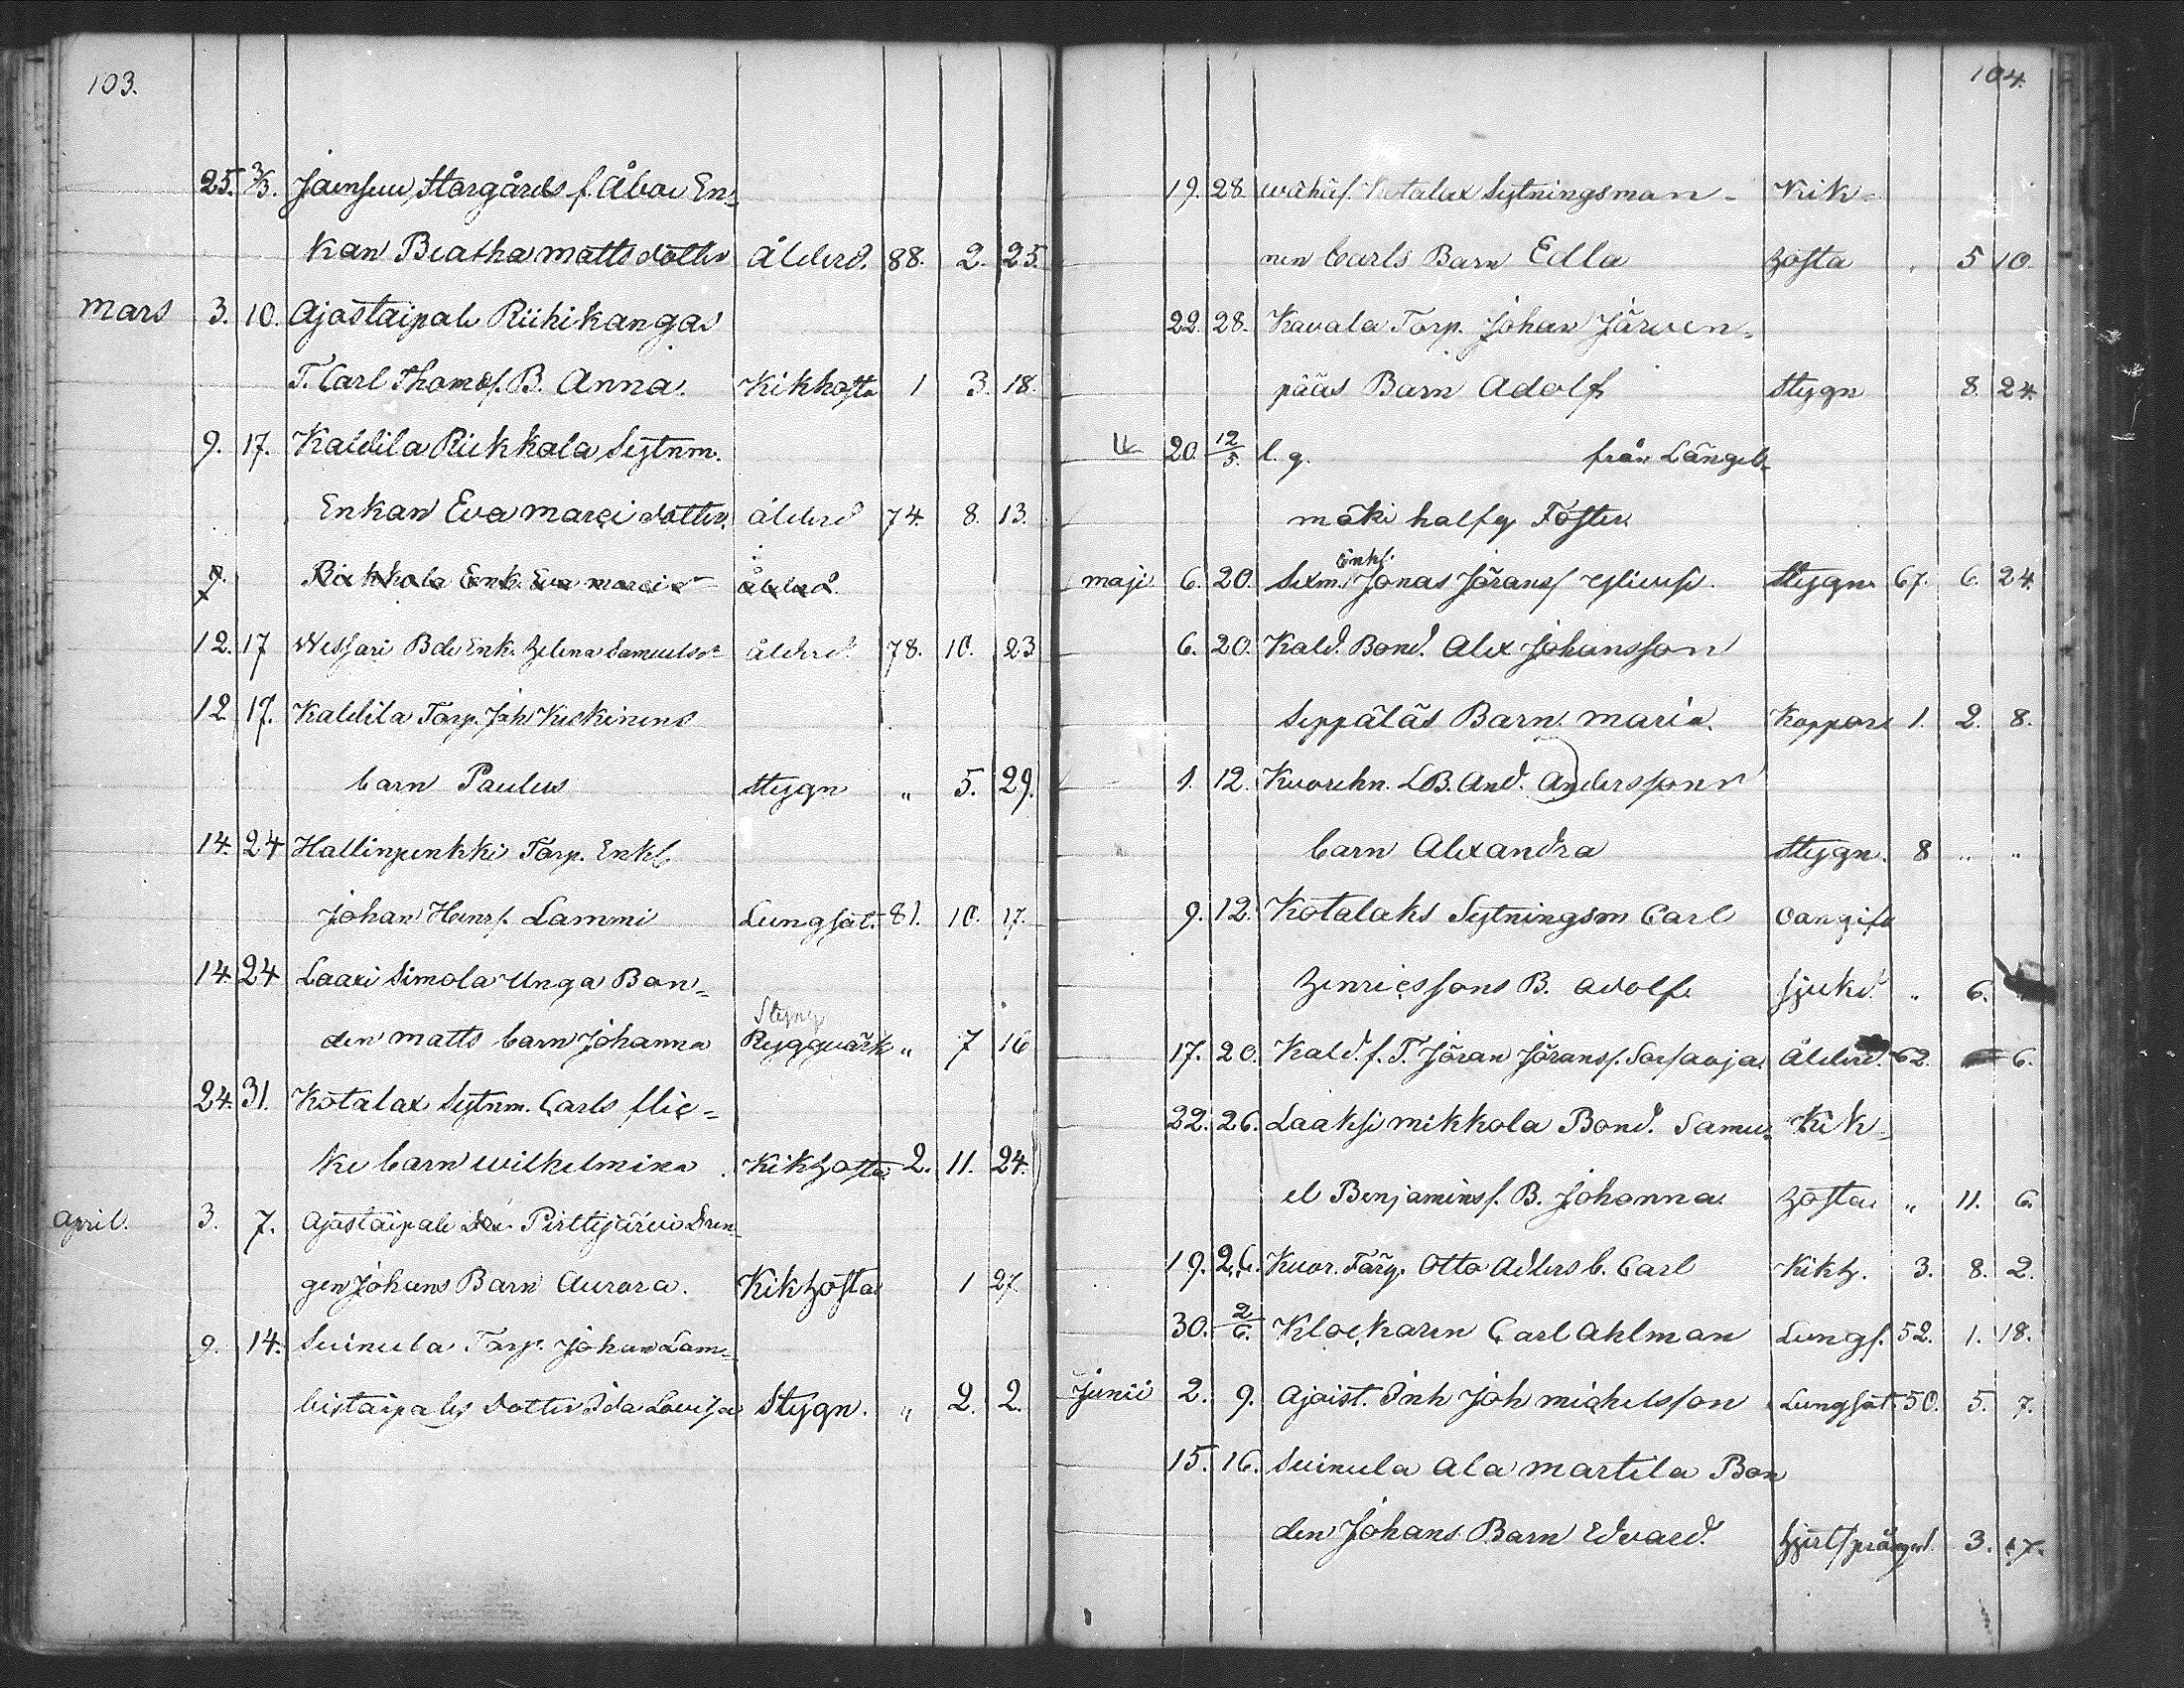 103.
25. 3/3. Jaensuu Storgårds f. Åboe En=
kan Beatha Mattsdotter Ålderd. 88. 2. 25.
Mars 3. 10. Ajostaipale Riihikangas
T. Carl Thomæs. B. Anna. Kikhosta 1 3. 18.
9. 17. Kaldila Riekkala Sytnm.
Enkan Eva Marci dotter. ålderd 74. 8. 13.
9. Riekkala Enk. Eva Marci dr ålderd.
12. 17 Wessari Bde Enk. Helena Samuelsdr ålderd. 78. 10. 23
12 17. Kaldila Torp. Joh Keskinens
barn Paulus Stygn " 5. 29.
14. 24 Hallinpenkki Torp. Enkl
Johan Henrs. Lammi Lungsot. 81. 10. 17.
14. 24 Laaxi Simola Unga Bon=
Stygn
den Matts barn Johanna Ryggvärk " 7 16
24. 31. Kotalax Sytnm. Carls flic=
ke barn Wilhelmina. Kikhosta 2. 11. 24.
April. 3. 7. Ajostaipale Pirttijärvi Dren=
gen Johans Barn Aurora. Kikhosta 1 27
9. 14. Suinula Torp. Johan Lam=
bistaipales dotter Ida Lovisa Stygn. " 2. 2.
104.
19. 28 Kotalax Sytningsman- Kik=
nen Carls Barn Edla hosta " 5 10.
22. 28. Kavala Torp. Johan Järven=
pääs Barn Adolf Stygn 8. 24.
20. 12/5. l. g. från Längel=
mäki halfg Foster.
Enkl.
Maji 6. 20. Sexm. Jonas Jöransf Stygn 67. 6. 24
6. 20. Kald. Bond. Alex Johansson
Seppäläs Barn. Maria. Koppor 1. 2. 8.
1. 12. Kuorehn. LB. And. Anderssons
barn Alexandra Stygn. 8 " "
9. 12. Kotalaks Sytningsm Carl oangif
Henricssons B. Adolf. sjukd. " 6.
17. 20. Kald. f. T. Jöran Jöransf. Sorsaoja. Ålderd. 62. 6.
22. 26. Laaksi Mikkola Bond. Samu= Kik=
el Benjamins f. B. Johanna. hosta " 11. 6.
19. 26. Kuor. Färg. Otto Adlers b. Carl Kikh. 3. 8. 2.
30. 2/6. Klockaren Carl Ahlman Lungs. 52. 1. 18.
Junii 2. 9. Ajoist. Inh Joh Michelsson Lungsot 50. 5. 7.
15. 16. Suinula Ala Martila Bon
den Johans Barn Edvard. 3. 17.